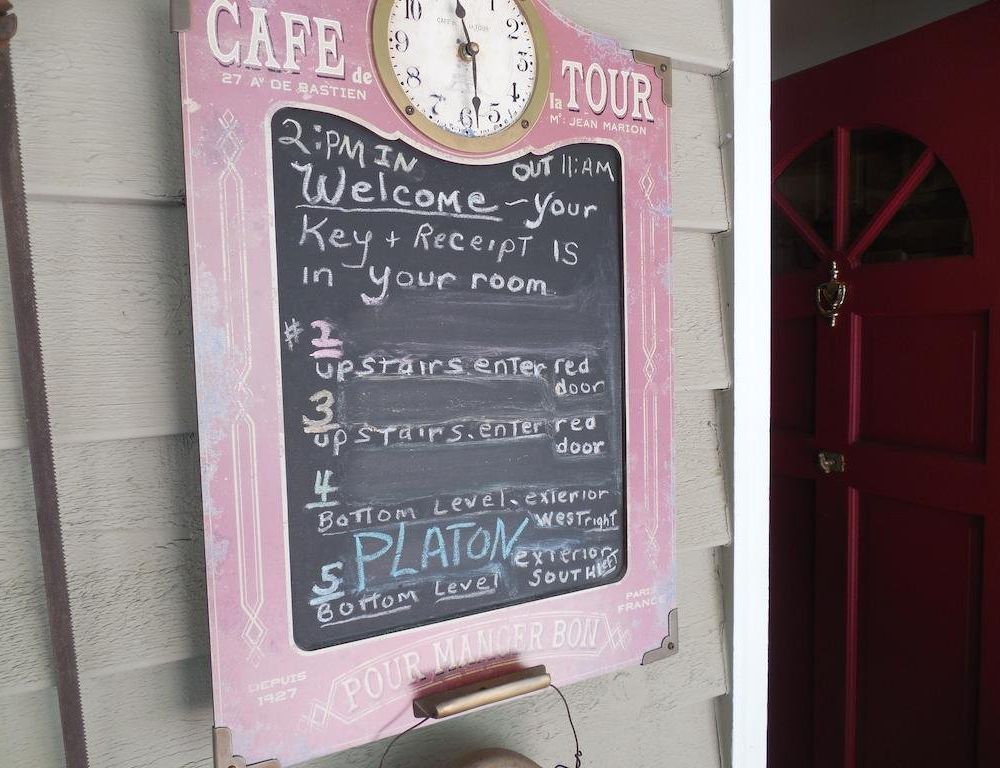 CAFE de la TOUR
27 A' DE BASTIEN
Mᵉ: JEAN MARION
10 2
9 3
8 4
7 6 5
2:PM IN OUT 11:AM
Welcome - your
Key + Receipt Is
in your room
# 2
upstairs enter red
door
3
upstairs. enter red
door
4
Bottom Level. exterior
West right
PLATON
5 exterior
SOUTH left
Bottom Level
PARIS
FRANCE
POUR MANGER BON
DEPUIS
1927